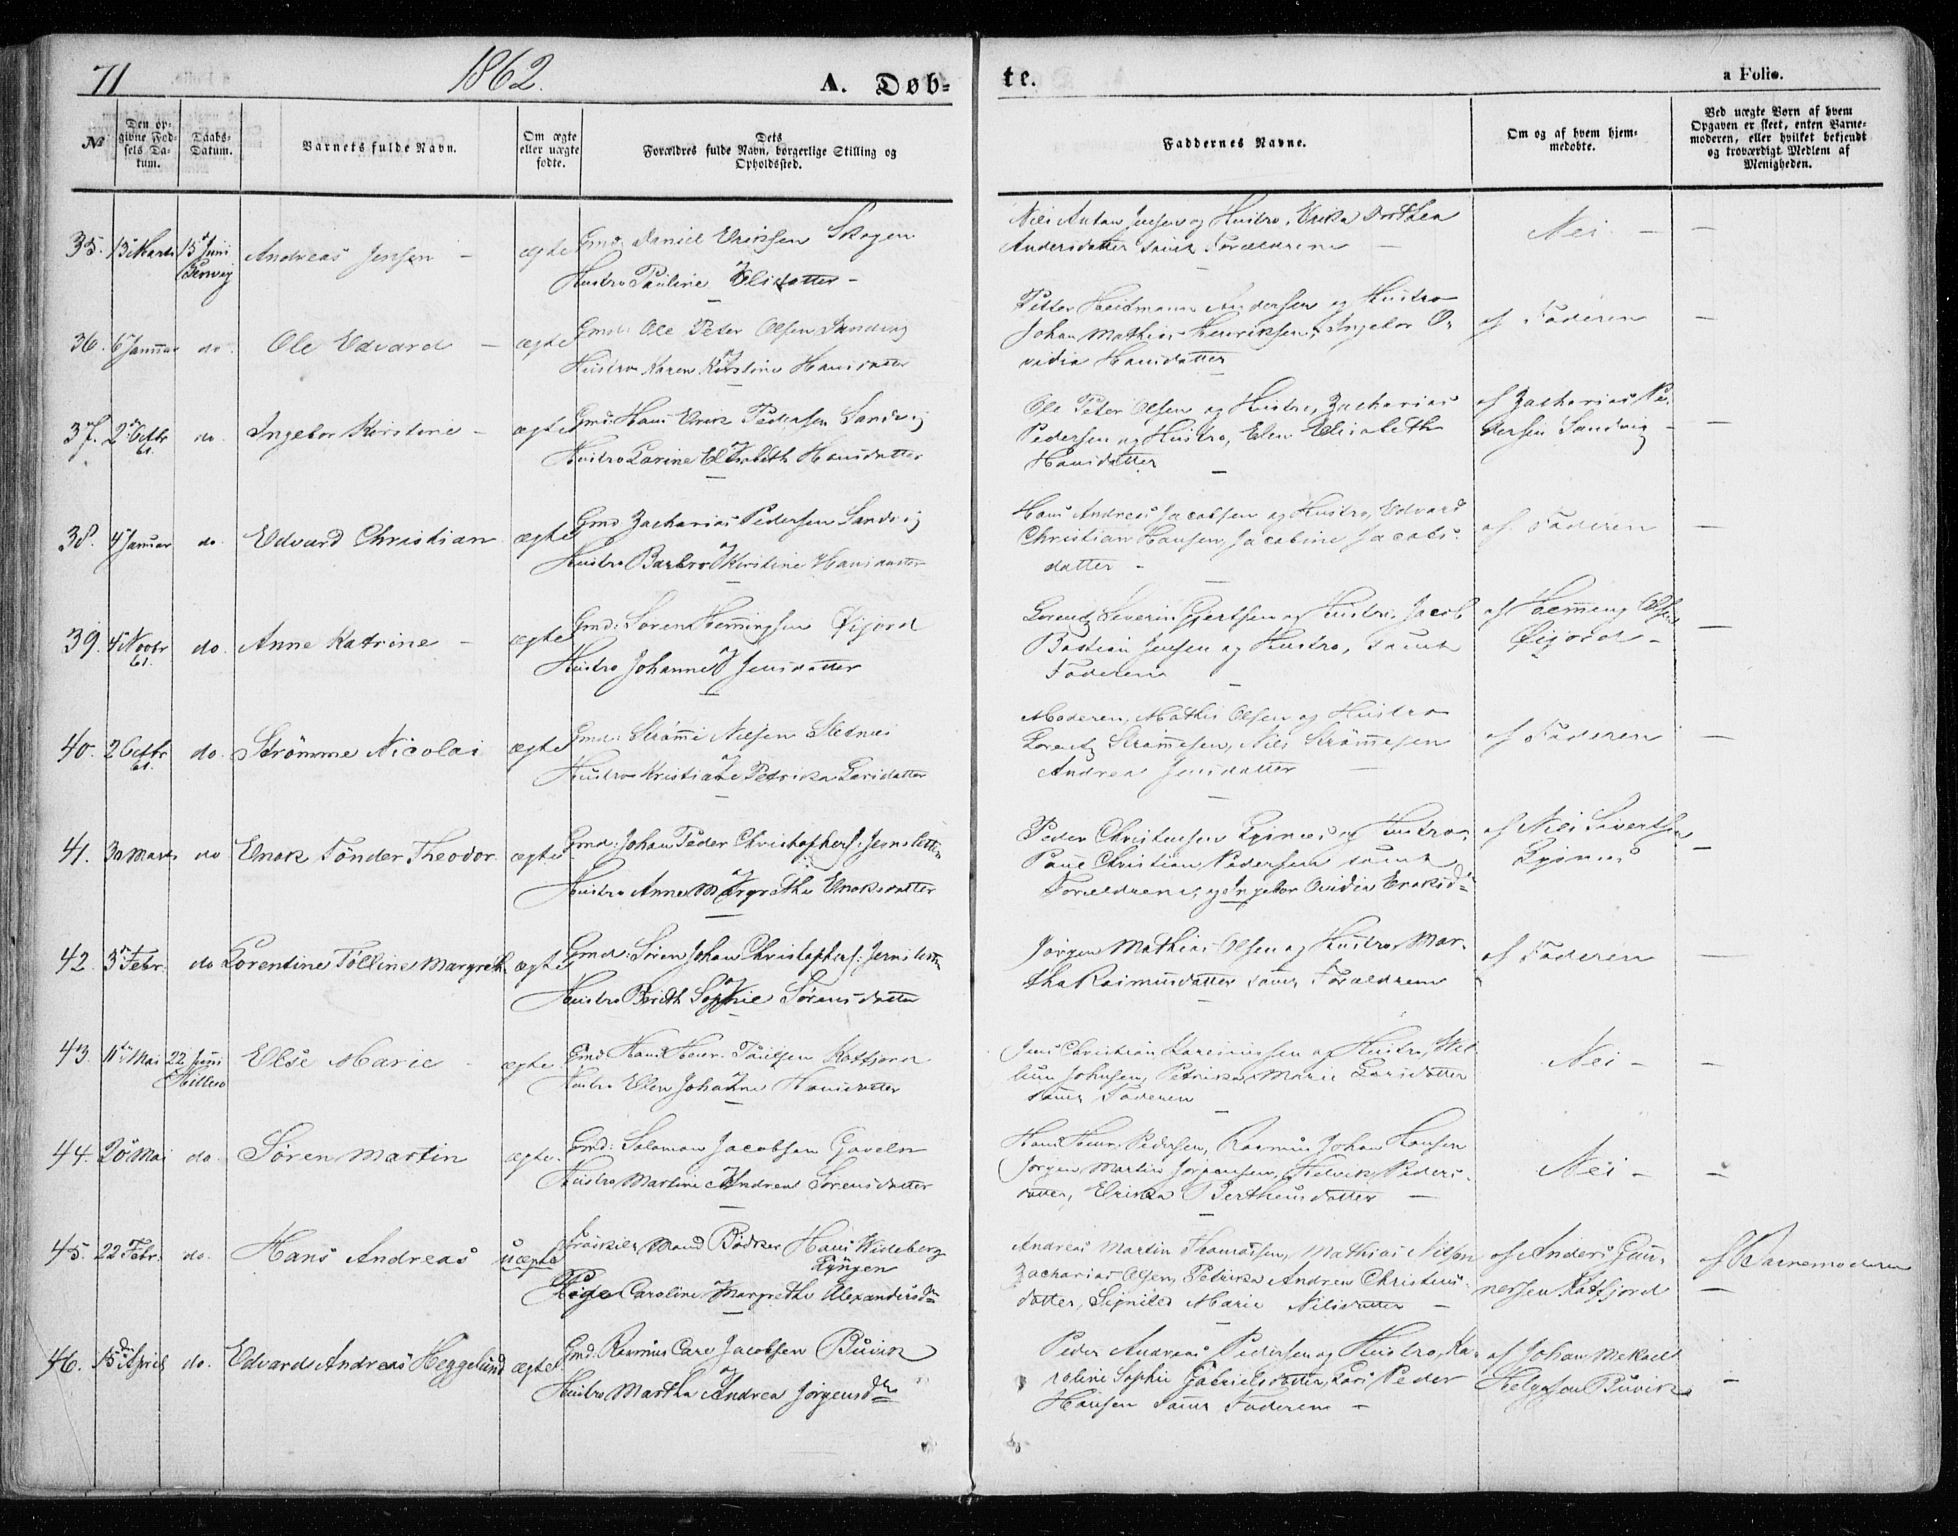 71
1862.
A. Døb-
te.
a Folio.
№
Den op-
givne Fød-
sels Da-
tum.
Daabs-
Datum.
Barnets fulde Navn.
Om ægte
eller uægte
fødte.
Dets
Forældres fulde Navn, borgerlige Stilling og
Opholdssted.
Faddernes Navne.
Om og af hvem hjem-
medøbte.
Ved uægte Børn af hvem
Opgaven er skeet, enten Barne-
moderen, eller hvilket bekjendt
og troværdigt Medlem af
Menigheden.
35. 15 Marts 15 Juni Andreas Jensen - ægte Gmd: Daniel Eriksen Skogen
Hustro Pauline Olsdatter -
Nils Anton Jensen og Hustro, Erika Dorthea
Andersdatter samt Forældrene -
Nei - -
36. 6 Januar do. Ole Edvard - ægte Gmd: Ole Peter Olsen Sandvig
og Hustro Karen Kirstine Hansdatter
Petter Heitmann Andersen og Hustro
Johan Mathias Henriksen, Ingebor O-
vidia Hansdatter
af Faderen -
37. 2 Octbr 61. do. Ingebor Kirstine - ægte Gmd: Hans Erik Pedersen Sandvig
og Hustro Larine Elisabeth Hansdatter
Ole Peter Olsen og Hustro, Zacharias
Pedersen og Hustro, Elen Elisabeth
Hansdatter
af Zacharias Pe-
dersen Sandvig - -
38. 4 Januar do. Edvard Christian ægte Gmd Zacharias Pedersen Sandvig
og Hustro Barbro Kirstine Hansdatter
Hans Andreas Jacobsen og Hustro, Edvard
Christian Hansen, Jacobine Jacobs-
datter -
af Faderen -
39. 4 Novbr 61. do. Anne Katrine - ægte Gmd: Søren Hemingsen Øijord
og Hustro Johanne Jensdatter
Lorentz Severin Gjertsen og Hustro, Jacob
Bastian Jensen og Hustro, samt
Faderen
af Hemming Olsen
Øijord - -
40. 2 Octbr 61. do. Strømme Nicolai ægte Gmd: Strømme Nilsen Sletnes
og Hustro Kristiane Petrika Larsdatter
Moderen, Mathis Olsen og Hustro
Lorentz Strømmesen, Nils Strømmesen
Andrea Jensdatter -
af Faderen -
41. 30 Marts do Enok Tønder Theodor ægte Gmd: Johan Peder Christophers: Jernsletten
og Hustro Anne Margrethe Enoksdatter
Peder Christensen og Hustro,
Christian Pedersen samt
Forældrene, og Ingebor Ovidia Enoksd:
af Nils Sivertsen
-
42. 3 Febr. do Lorentine Tølline Margreth ægte Gmd: Søren Johan Christophers: Jernsletten
og Hustro Berith Sophie Sørensdatter
Jørgen Mathias Olsen og Hustro, Mar-
tha Rasmusdatter samt Forældrene
af Faderen -
43. 11te Mai 22 Juni Hillesø Else Marie - ægte Gmd Hans Henr. Paulsen Katfjord
og Hustro Elen Johanne Hansdatter
Jens Christian og Hustro,
Johnsen, Petrika Marie Larsdatter
samt Faderen
Nei - -
44. 20 Mai do Søren Martin ægte Gmd: Salomon Jacobsen Gaveln
og Hustro Martine Andrea Sørensdatter
Hans Henr. Pedersen, Rasmus Johan Hansen
Jørgen Martin Jørgensen, Peders-
datter, Erika Bertheusdatter -
Nei - -
45. 22 Febr. do. Hans Andreas uægte Mand Bødker Hans Wideberg
Lyngen
og Pige Caroline Margrethe Alexandersdtr
Andreas Martin Thomassen, Mathias Nilsen
Zacharias Olsen, Petrika Andrea Christens-
datter, Marie Nilsdatter -
af Anders Gun-
nersen Katfjord
af Barnemoderen
-
46. 15de April do. Edvard Andreas Heggelund ægte Gmd: Rasmus Carl Jacobsen Buvik
og Hustro Martha Andrea Jørgensdtr
Peder Andreas Pedersen og Hustro, Ka-
roline Sophie Gabrielsdatter, Lars Peder
Hansen samt Faderen -
af Johan Mekael
Helgesen Buvik
-